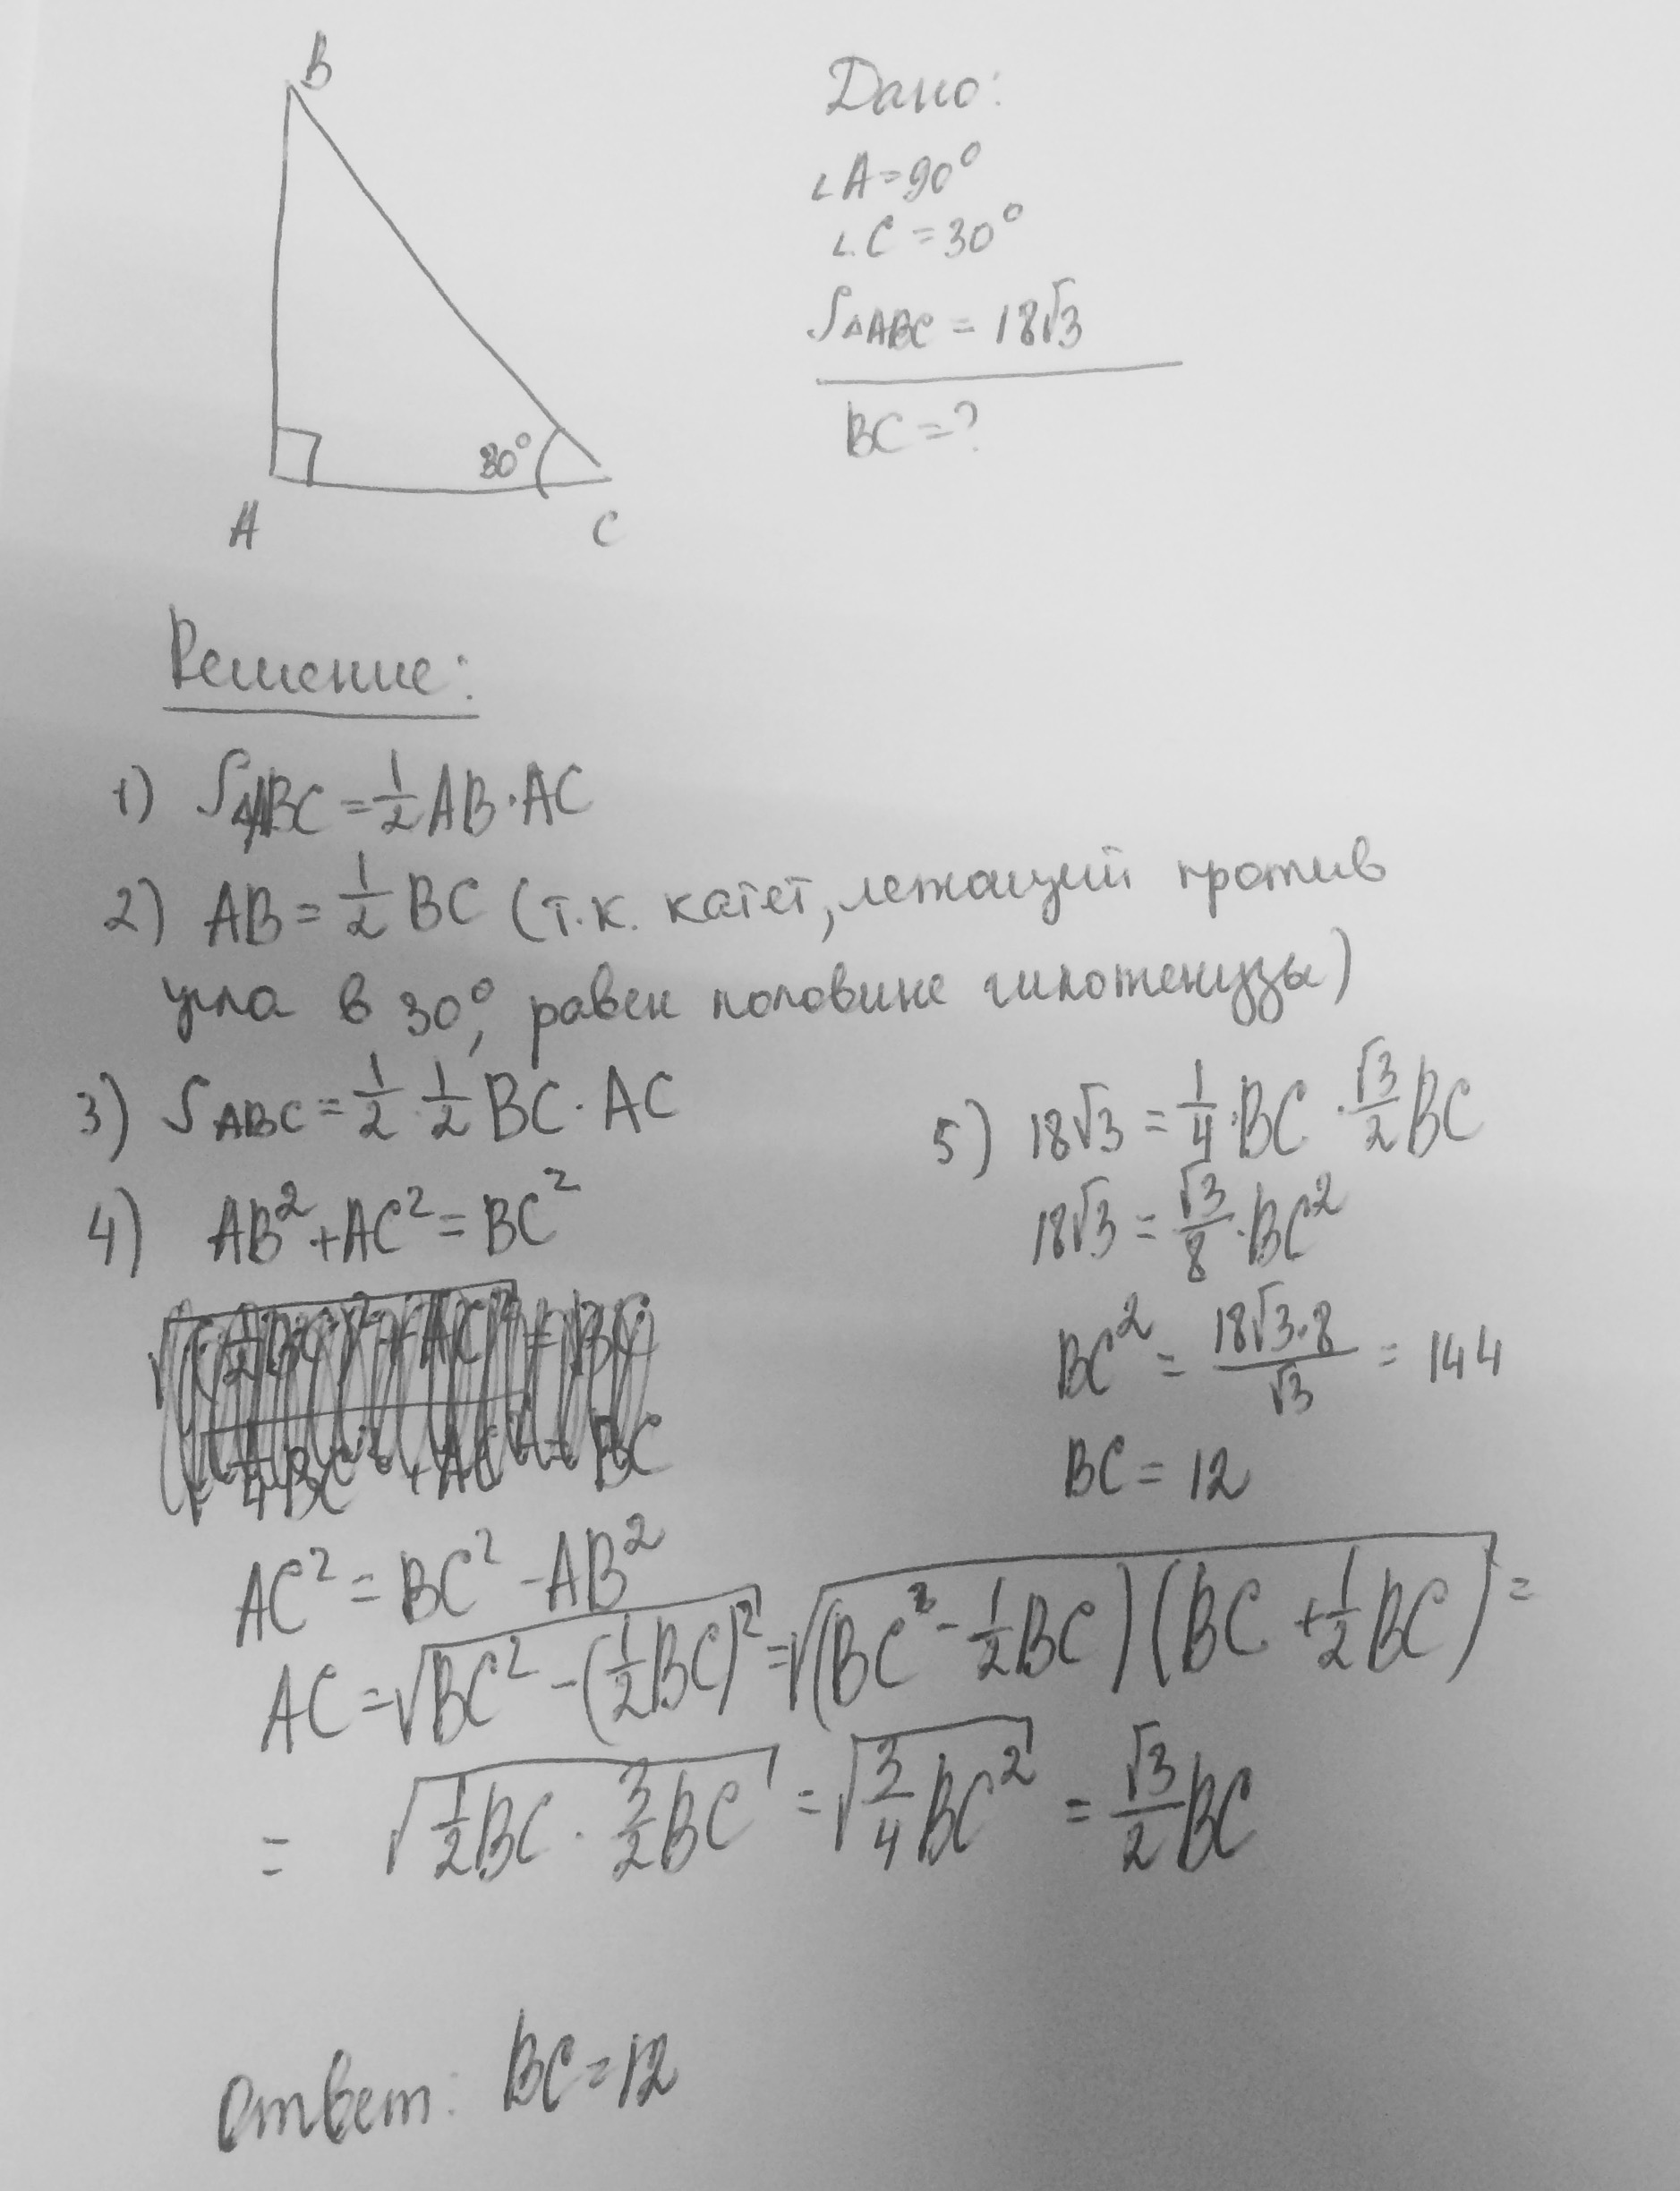 B
A
30°
C
Дано:
∠A=90°
∠C=30°
S△ABC = 18√3
BC=?
Решение:
1) S△ABC = 1/2 AB·AC
2) AB = 1/2 BC (т.к. катет, лежащий против
угла в 30°, равен половине гипотенузы)
3) SABC = 1/2 · 1/2 BC · AC
4) AB² + AC² = BC²
AC² = BC² - AB²
AC = √(BC² - (1/2 BC)²) = √((BC - 1/2 BC)(BC + 1/2 BC)) =
= √(1/2 BC · 3/2 BC) = √(3/4 BC²) = √3/2 BC
5) 18√3 = 1/4 · BC · √3/2 BC
18√3 = √3/8 · BC²
BC² = 18√3·8/√3 = 144
BC = 12
Ответ: BC=12